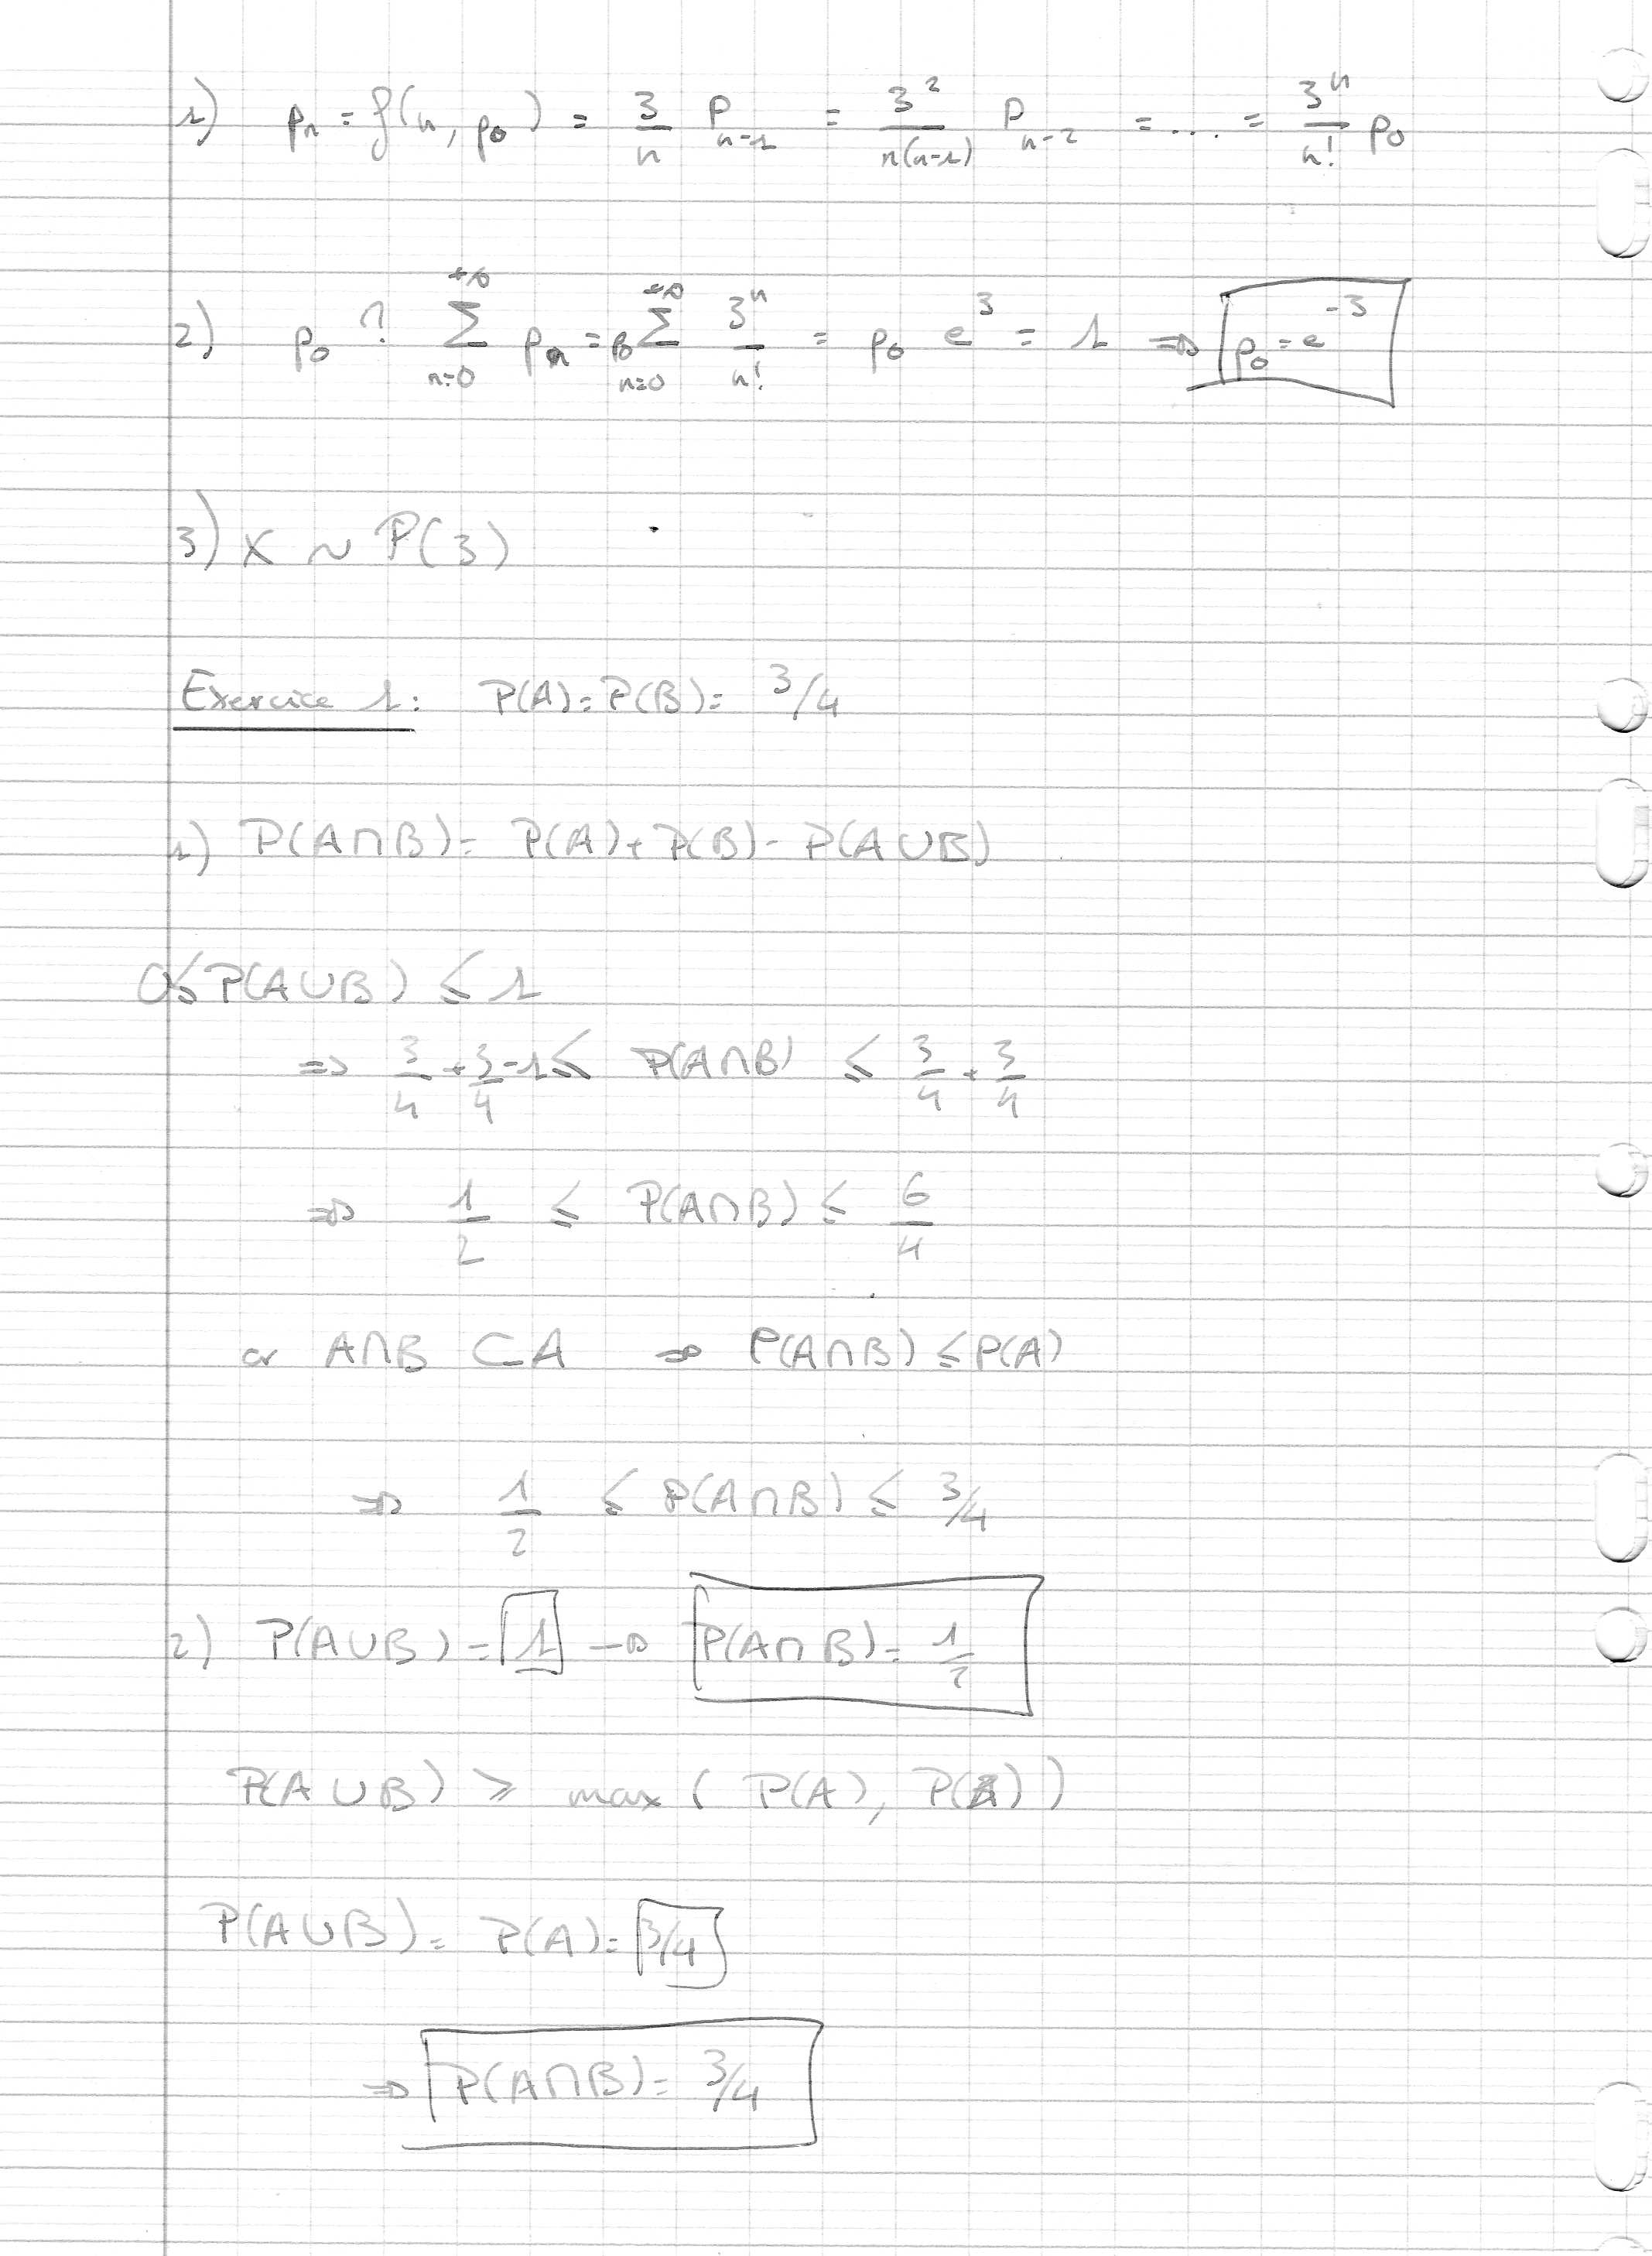 1) pₙ = f(n, p₀) = 3/n pₙ₋₁ = 3²/(n(n-1)) pₙ₋₂ = .... = 3ⁿ/n! p₀
2) p₀ ? ∑_{n=0}^{+∞} pₙ = p₀ ∑_{n=0}^{+∞} 3ⁿ/n! = p₀ e³ = 1 ⇒ p₀ = e⁻³
3) X ~ P(3)
Exercice 1: P(A) = P(B) = 3/4
1) P(A∩B) = P(A) + P(B) - P(A∪B)
0 ≤ P(A∪B) ≤ 1
=> 3/4 + 3/4 - 1 ≤ P(A∩B) ≤ 3/4 + 3/4
⇒ 1/2 ≤ P(A∩B) ≤ 6/4
or A∩B ⊂ A ⇒ P(A∩B) ≤ P(A)
⇒ 1/2 ≤ P(A∩B) ≤ 3/4
2) P(A∪B) = 1 → P(A∩B) = 1/2
P(A∪B) ≥ max(P(A), P( ))
P(A∪B) = P(A) = 3/4
⇒ P(A∩B) = 3/4